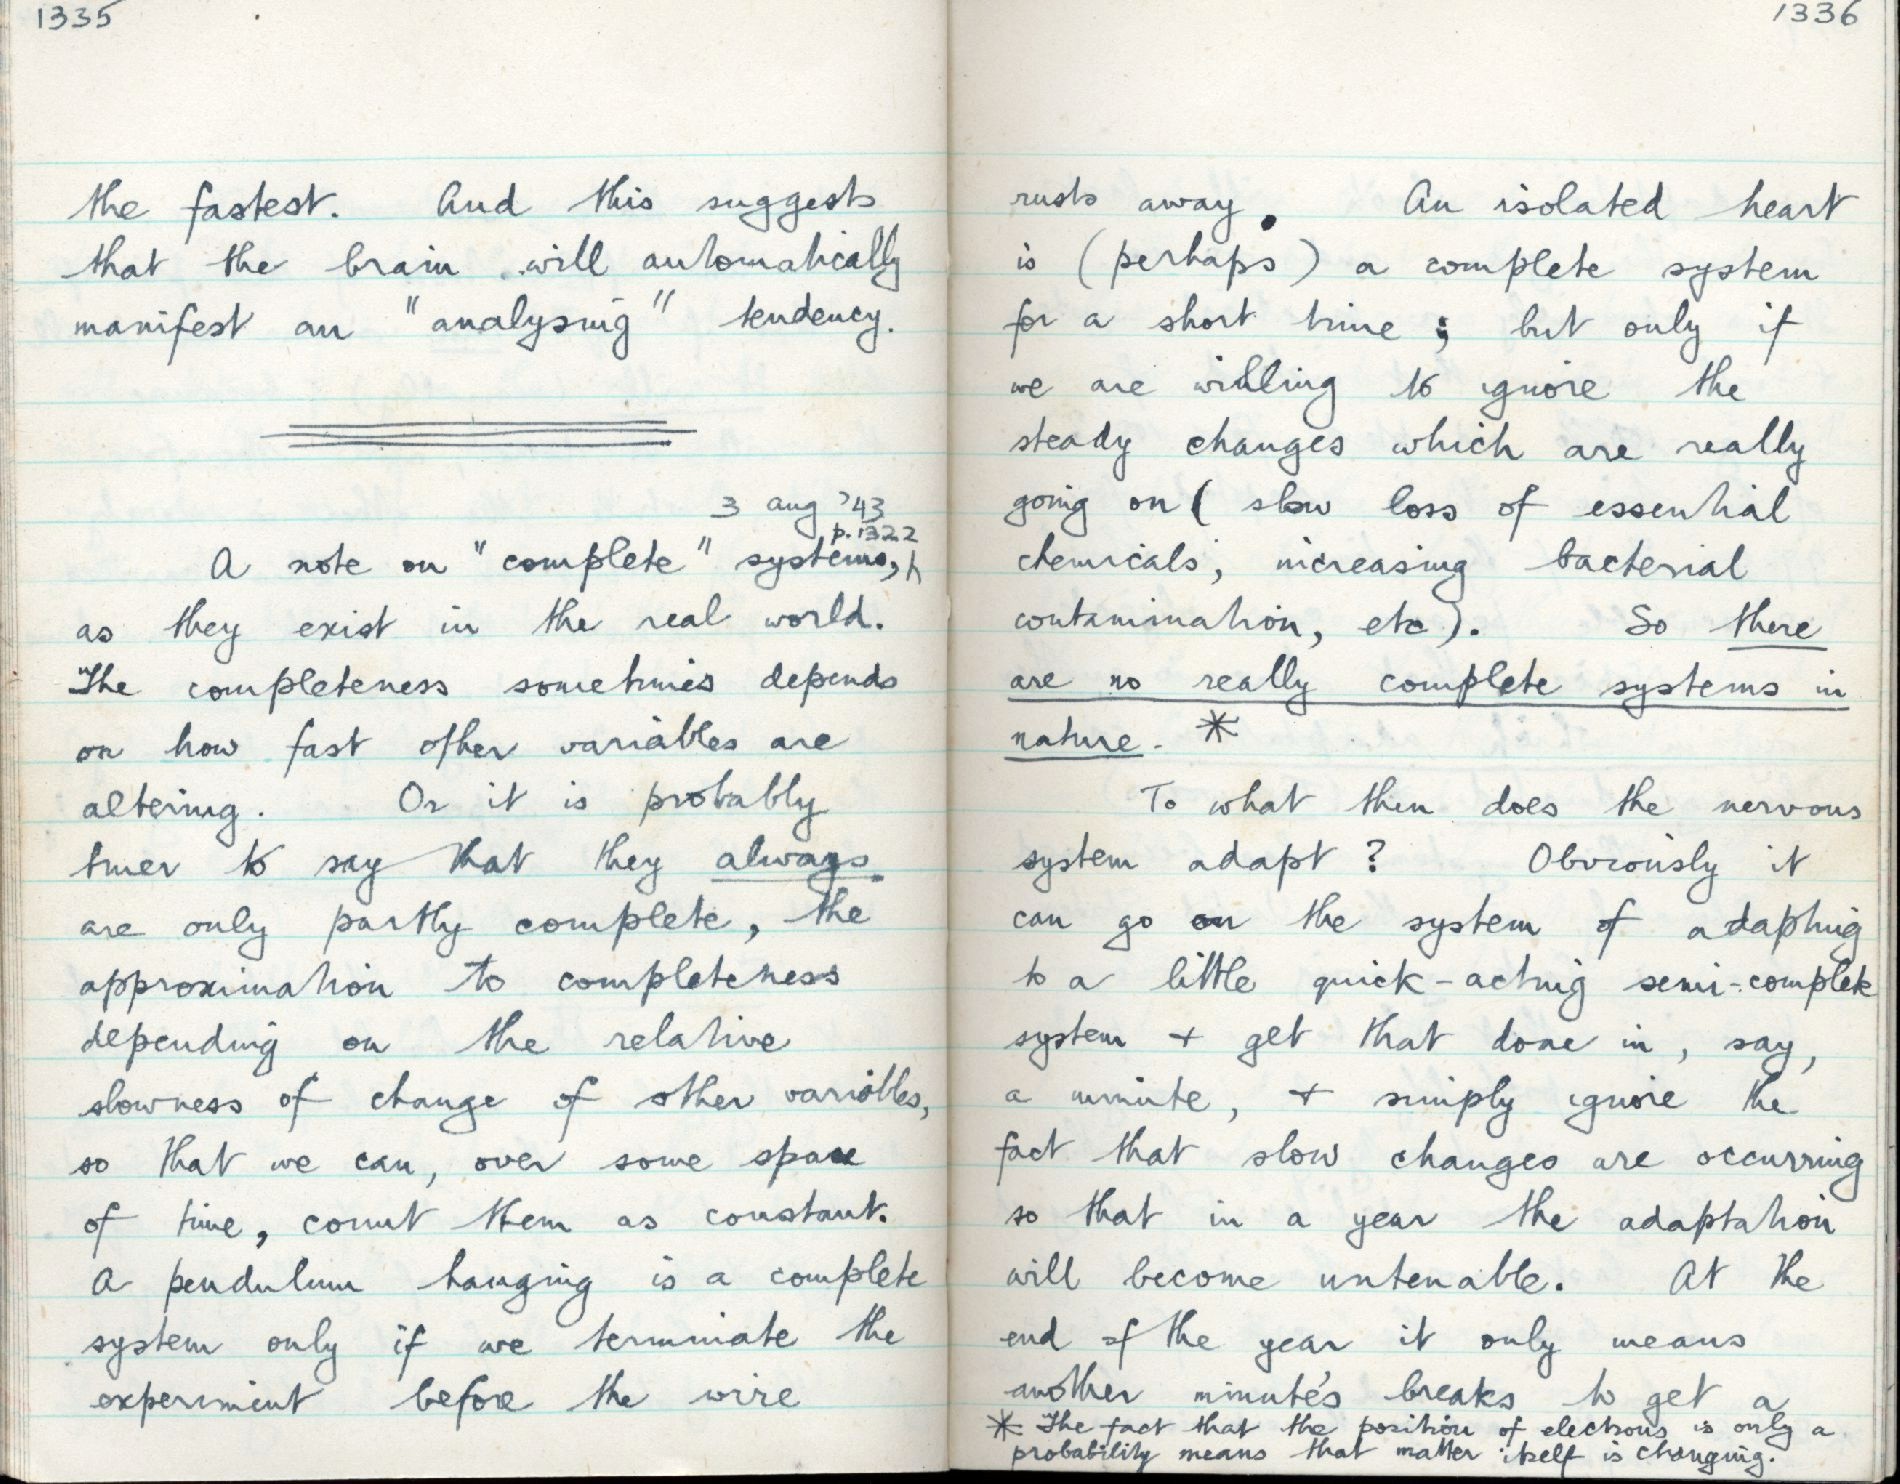 1335
the fastest. And this suggests
that the brain will automatically
manifest an "analysing" tendency.
3 Aug '43
p.1322
A note on "complete" systems,
as they exist in the real world.
The completeness sometimes depends
on how fast other variables are
altering. Or it is probably
truer to say that they always
are only partly complete, the
approximation to completeness
depending on the relative
slowness of change of other variables,
so that we can, over some space
of time, count them as constant.
A pendulum hanging is a complete
system only if we terminate the
experiment before the wire
1336
rusts away. An isolated heart
is (perhaps) a complete system
for a short time; but only if
we are willing to ignore the
steady changes which are really
going on (slow loss of essential
chemicals, increasing bacterial
contamination, etc). So there
are no really complete systems in
nature. *
To what then does the nervous
system adapt? Obviously it
can go on the system of adapting
to a little quick-acting semi-complete
system + get that done in, say,
a minute, + simply ignore the
fact that slow changes are occurring
so that in a year the adaptation
will become untenable. At the
end of the year it only means
another minute's breaks to get a
* The fact that the position of electrons is only a
probability means that matter itself is changing.